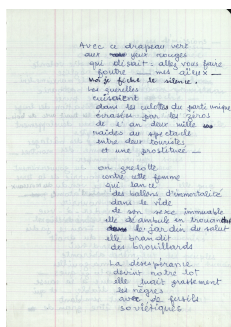 Avec ce drapeau vert
aux yeux rouges
qui disait : allez vous faire
foutre _ mes aïeux _
Moi je fiche le silence.
Les querelles
cuisaient
dans les culottes du parti unique
écrasées par les zéros
de l'an deux mille
raides au spectacle
entre deux touristes
et une prostituée _
on grelotte
contre cette femme
qui lance
des ballons d'immortalité
dans le vide
de son sexe immuable
elle déambule en trouant
le jardin du salut
elle brandit
des brouillards
La désespérance
devint notre lot
elle tuait grassement
les nègres
avec de fusils
soviétiques